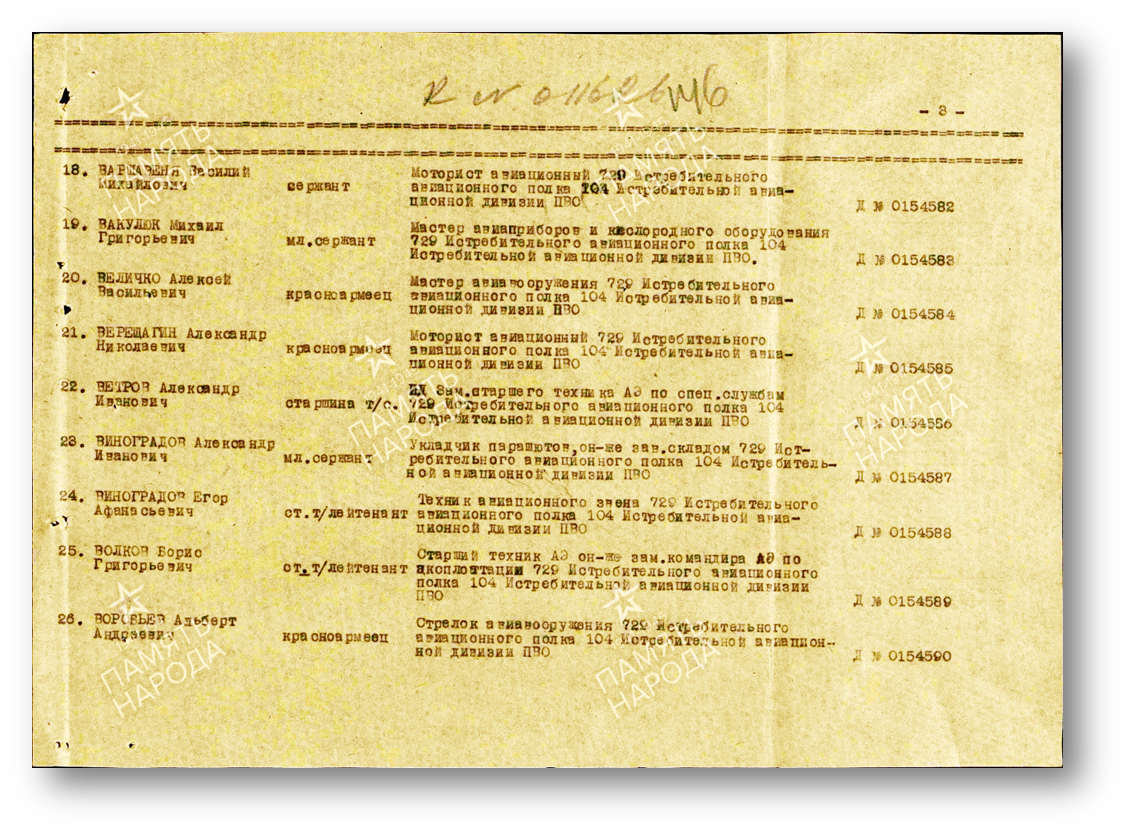 - 3 -
18. ВАРШАВЕНЯ Василий
Михайлович
сержант
Моторист авиационный 729 Истребительного
авиационного полка 104 Истребительной авиа-
ционной дивизии ПВО
Д № 0154582
19. ВАКУЛЮК Михаил
Григорьевич
мл.сержант
Мастер авиаприборов и кислородного оборудования
729 Истребительного авиационного полка 104
Истребительной авиационной дивизии ПВО.
Д № 0154583
20. ВЕЛИЧКО Алексей
Васильевич
красноармеец
Мастер авиавооружения 729 Истребительного
авиационного полка 104 Истребительной авиа-
ционной дивизии ПВО
Д № 0154584
21. ВЕРЕЩАГИН Александр
Николаевич
красноармеец
Моторист авиационный 729 Истребительного
авиационного полка 104 Истребительной авиа-
ционной дивизии ПВО
Д № 0154585
22. ВЕТРОВ Александр
Иванович
старшина т/с.
ИД Зам.старшего техника АЭ по спец.службам
729 Истребительного авиационного полка 104
Истребительной авиационной дивизии ПВО
Д № 0154586
23. ВИНОГРАДОВ Александр
Иванович
мл.сержант
Укладчик парашютов,он-же зав.складом 729 Ист-
ребительного авиационного полка 104 Истребитель-
ной авиационной дивизии ПВО
Д № 0154587
24. ВИНОГРАДОВ Егор
Афанасьевич
ст.т/лейтенант
Техник авиационного звена 729 Истребительного
авиационного полка 104 Истребительной авиа-
ционной дивизии ПВО
Д № 0154588
25. ВОЛКОВ Борис
Григорьевич
ст.т/лейтенант
Старший техник АЭ он-же зам.командира АЭ по
эксплоатации 729 Истребительного авиационного
полка 104 Истребительной авиационной дивизии
ПВО
Д № 0154589
26. ВОРОБЬЕВ Альберт
Андреевич
красноармеец
Стрелок авиавооружения 729 Истребительного
авиационного полка 104 Истребительной авиацион-
ной дивизии ПВО
Д № 0154590
ПАМЯТЬ
НАРОДА
ПАМЯТЬ
НАРОДА
ПАМЯТЬ
НАРОДА
ПАМЯТЬ
НАРОДА
ПАМЯТЬ
НАРОДА
ПАМЯТЬ
НАРОДА